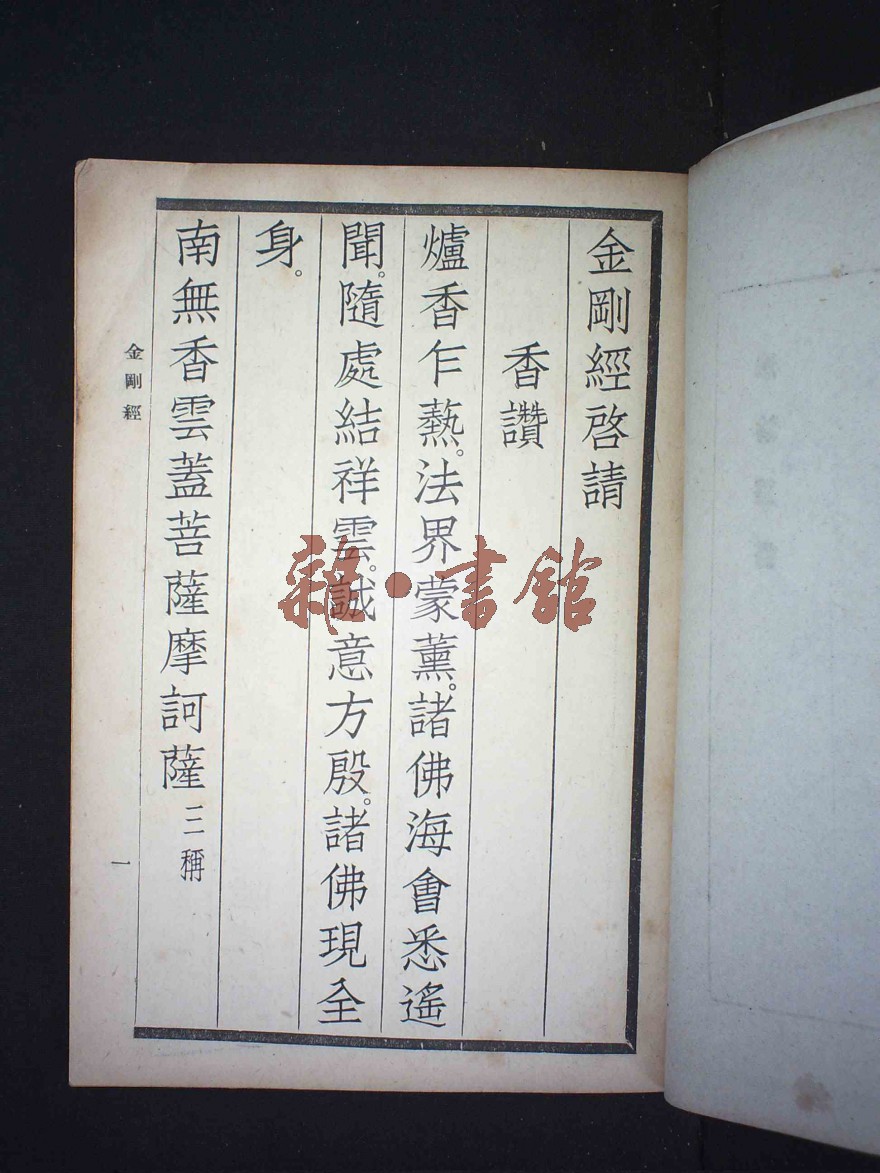 金剛經啓請
香讚
爐香乍爇。法界蒙薰。諸佛海會悉遙
聞。隨處結祥雲。誠意方殷。諸佛現全
身。
南無香雲蓋菩薩摩訶薩 三稱
金剛經
一
雜·書館